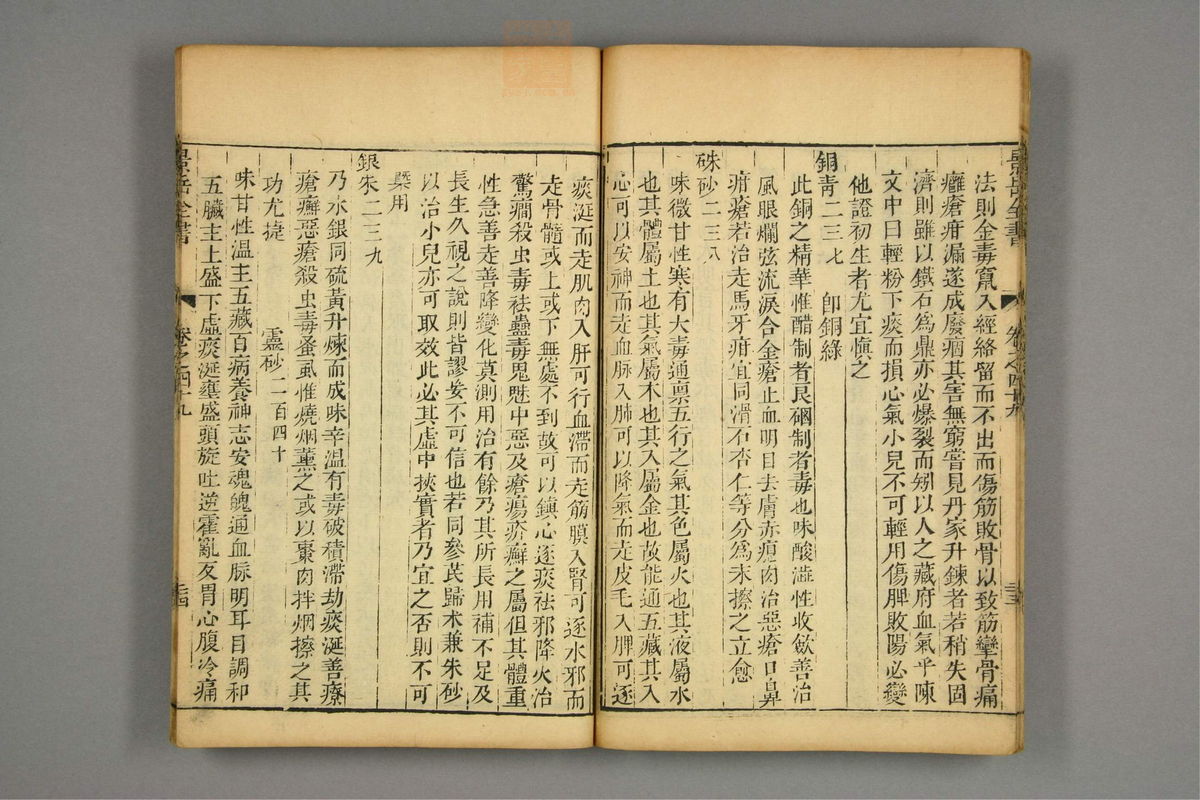 景岳全書
卷之四十九
三三
法則金毒竄入經絡留而不出而傷筋敗骨以致筋攣骨痛
癰瘡疳漏遂成廢痼其害無窮嘗見丹家升鍊者若稍失固
濟則雖以鐵石爲鼎亦必爆裂而矧以人之藏府血氣乎陳
文中曰輕粉下痰而損心氣小兒不可輕用傷脾敗陽必變
他證初生者尤宜愼之
銅青二三七 卽銅綠
此銅之精華惟醋制者良硇制者毒也味酸澁性收歛善治
風眼爛弦流淚合金瘡止血明目去膚赤瘜肉治惡瘡口鼻
疳瘡若治走馬牙疳宜同滑石杏仁等分爲末擦之立愈
硃砂二三八
味微甘性寒有大毒通禀五行之氣其色屬火也其液屬水
也其體屬土也其氣屬木也其入屬金也故能通五藏其入
心可以安神而走血脉入肺可以降氣而走皮毛入脾可逐
痰涎而走肌肉入肝可行血滯而走筋膜入腎可逐水邪而
走骨髓或上或下無處不到故可以鎭心逐痰祛邪降火治
驚癇殺虫毒祛蠱毒鬼魅中惡及瘡瘍疥癬之屬但其體重
性急善走善降變化莫測用治有餘乃其所長用補不足及
長生久視之說則皆謬妄不可信也若同參芪歸朮兼朱砂
以治小兒亦可取效此必其虛中挾實者乃宜之否則不可
槩用
銀朱二三九
乃水銀同硫黃升煉而成味辛溫有毒破積滯劫痰涎善療
瘡癬惡瘡殺虫毒蚤虱惟燒烟薰之或以棗肉拌烟擦之其
功尤捷
靈砂二百四十
味甘性溫主五藏百病養神志安魂魄通血脉明耳目調和
五臟主上盛下虛痰涎壅盛頭旋吐逆霍亂反胃心腹冷痛
景岳全書
卷之四十九
三四